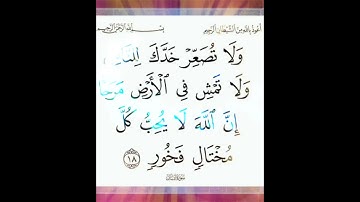 أعوذ بالله من الشيطان الرجيم
بسم الله الرحمن الرحيم
وَلَا تُصَعِّرْ خَدَّكَ لِلنَّاسِ
وَلَا تَمْشِ فِي ٱلْأَرْضِ مَرَحًا
إِنَّ ٱللَّهَ لَا يُحِبُّ كُلَّ
مُخْتَالٍ فَخُورٍ ١٨